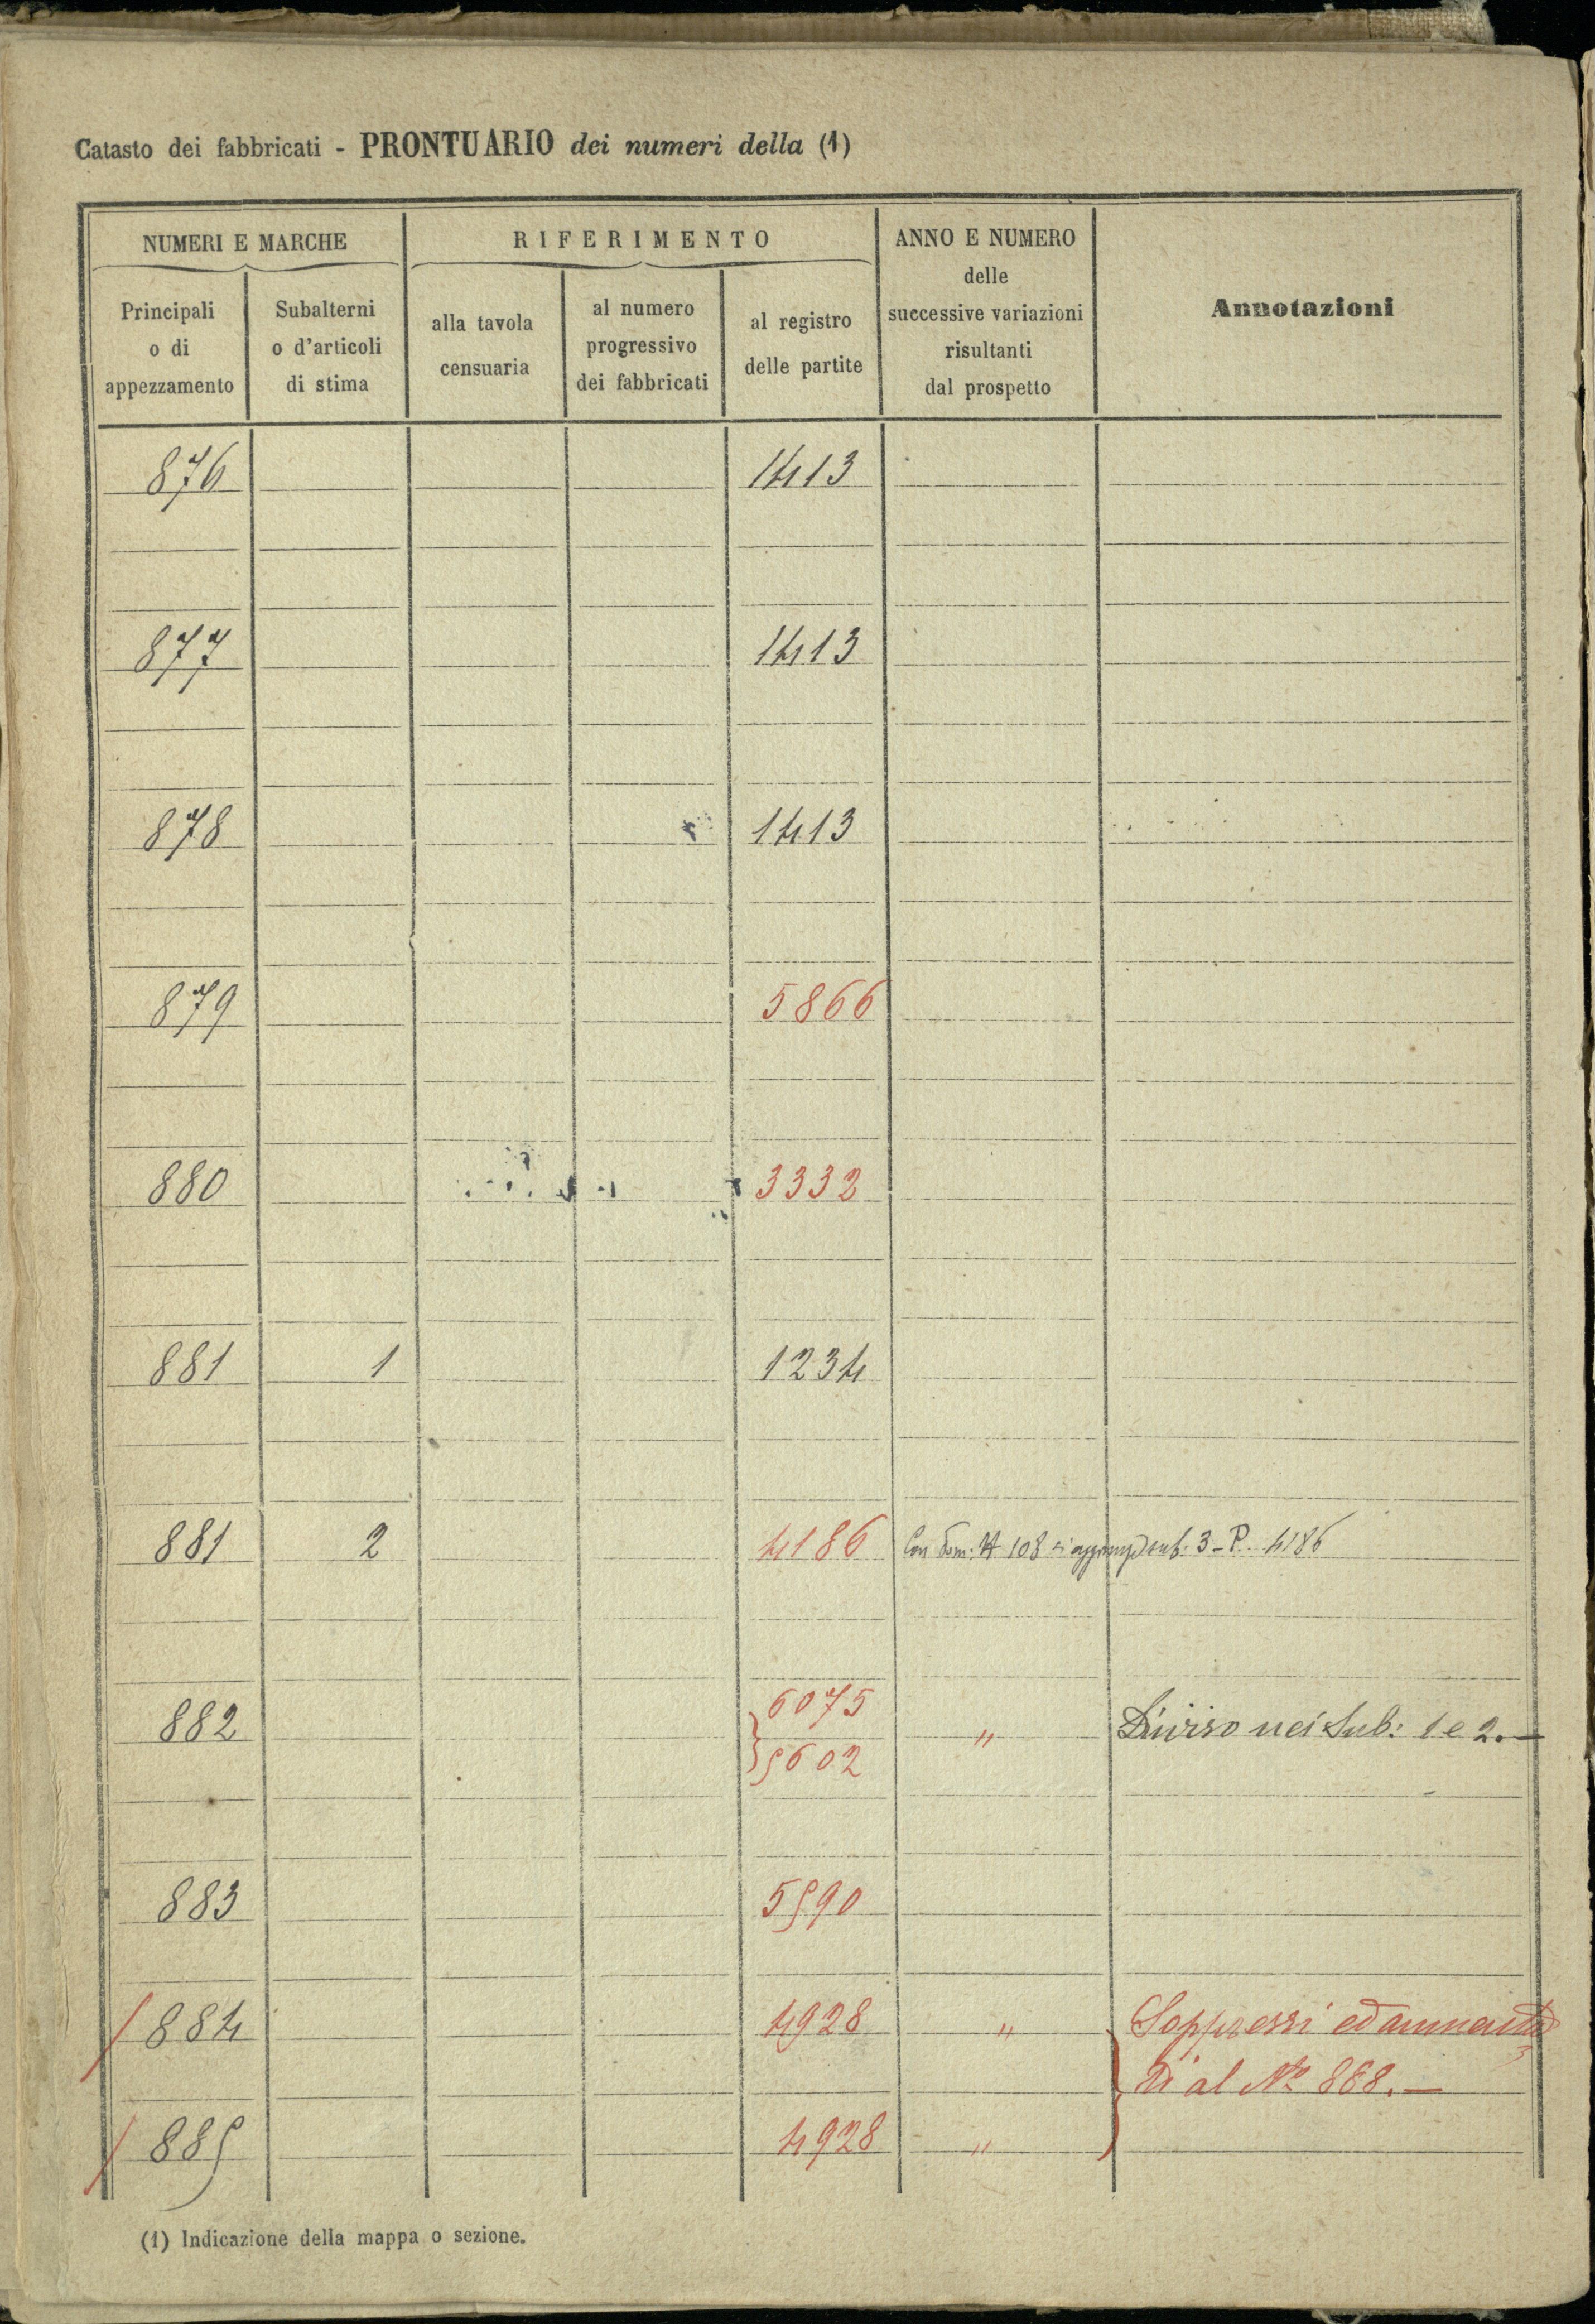 Catasto dei fabbricati - PRONTUARIO dei numeri della (1)
NUMERI E MARCHE
RIFERIMENTO
ANNO E NUMERO
delle
successive variazioni
risultanti
dal prospetto
Annotazioni
Principali
o di
appezzamento
Subalterni
o d'articoli
di stima
alla tavola
censuaria
al numero
progressivo
dei fabbricati
al registro
delle partite
876 1413
877 1413
878 1413
879 5866
880 3332
881 1 1234
881 2 4186 Con 108 si sub: 3 - P. 4186
882 6075 " Diviso nei Sub: 1 e 2. -
5602
883 5590
884 4928 " Soppressi ed
al N° 888. -
885 4928 "
(1) Indicazione della mappa o sezione.